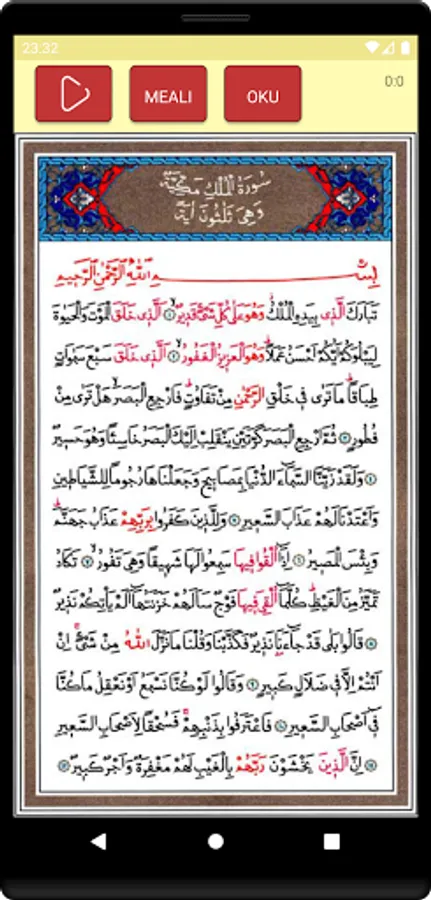 23.32
MEALI
OKU
0:0
سُورَةُ الْمُلْكِ مَكِّيَّةٌ
وَهِيَ ثَلٰثُونَ اٰيَةً
بِسْمِ اللّٰهِ الرَّحْمٰنِ الرَّحِيمِ
تَبَارَكَ الَّذِى بِيَدِهِ الْمُلْكُ وَهُوَ عَلٰى كُلِّ شَىْءٍ قَدِيرٌ ۞ اَلَّذِى خَلَقَ الْمَوْتَ وَالْحَيٰوةَ
لِيَبْلُوَكُمْ اَيُّكُمْ اَحْسَنُ عَمَلًا وَهُوَ الْعَزِيزُ الْغَفُورُ ۞ اَلَّذِى خَلَقَ سَبْعَ سَمٰوَاتٍ
طِبَاقًا مَا تَرٰى فِى خَلْقِ الرَّحْمٰنِ مِنْ تَفَاوُتٍ فَارْجِعِ الْبَصَرَ هَلْ تَرٰى مِنْ
فُطُورٍ ۞ ثُمَّ ارْجِعِ الْبَصَرَ كَرَّتَيْنِ يَنْقَلِبْ اِلَيْكَ الْبَصَرُ خَاسِئًا وَهُوَ حَسِيرٌ
۞ وَلَقَدْ زَيَّنَّا السَّمَاءَ الدُّنْيَا بِمَصَابِيحَ وَجَعَلْنَاهَا رُجُومًا لِلشَّيَاطِينِ
وَاَعْتَدْنَا لَهُمْ عَذَابَ السَّعِيرِ ۞ وَلِلَّذِينَ كَفَرُوا بِرَبِّهِمْ عَذَابُ جَهَنَّمَ
وَبِئْسَ الْمَصِيرُ ۞ اِذَا اُلْقُوا فِيهَا سَمِعُوا لَهَا شَهِيقًا وَهِىَ تَفُورُ ۞ تَكَادُ
تَمَيَّزُ مِنَ الْغَيْظِ كُلَّمَا اُلْقِىَ فِيهَا فَوْجٌ سَاَلَهُمْ خَزَنَتُهَا اَلَمْ يَأْتِكُمْ نَذِيرٌ
۞ قَالُوا بَلٰى قَدْ جَاءَنَا نَذِيرٌ فَكَذَّبْنَا وَقُلْنَا مَا نَزَّلَ اللّٰهُ مِنْ شَىْءٍ اِنْ
اَنْتُمْ اِلَّا فِى ضَلَالٍ كَبِيرٍ ۞ وَقَالُوا لَوْ كُنَّا نَسْمَعُ اَوْ نَعْقِلُ مَا كُنَّا
فِى اَصْحَابِ السَّعِيرِ ۞ فَاعْتَرَفُوا بِذَنْبِهِمْ فَسُحْقًا لِاَصْحَابِ السَّعِيرِ
۞ اِنَّ الَّذِينَ يَخْشَوْنَ رَبَّهُمْ بِالْغَيْبِ لَهُمْ مَغْفِرَةٌ وَاَجْرٌ كَبِيرٌ ۞